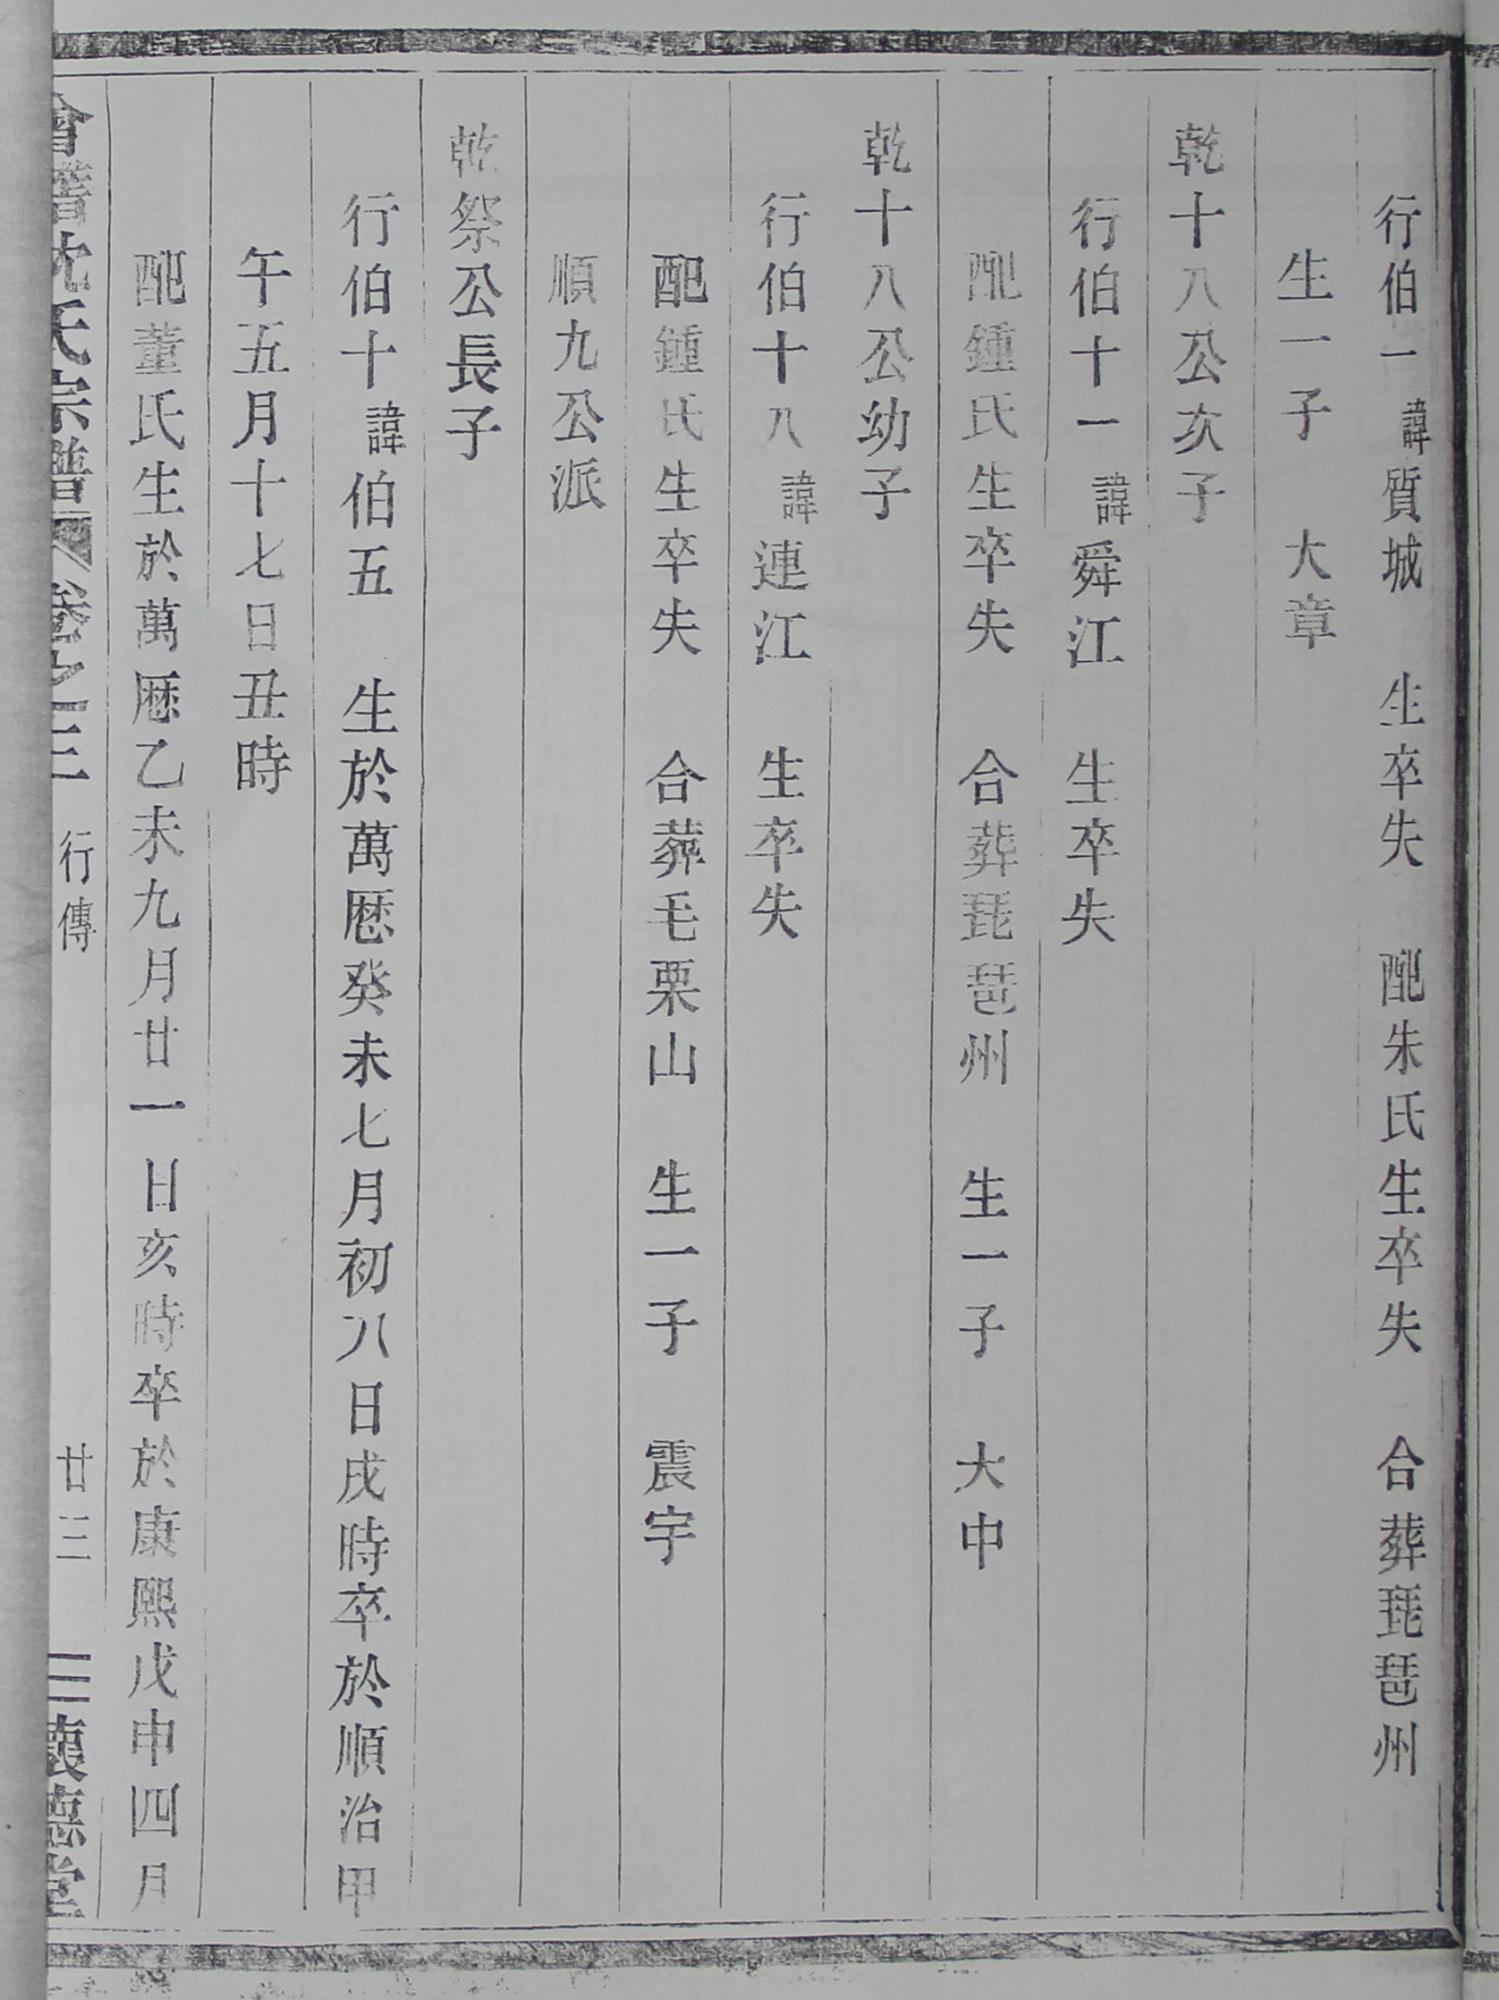 行伯一諱質城　生卒失　配朱氏生卒失　合葬琵琶州
生一子　大章
乾十八公次子
行伯十一諱舜江　生卒失
配鍾氏生卒失　合葬琵琶州　生一子　大中
乾十八公幼子
行伯十八諱連江　生卒失
配鍾氏生卒失　合葬毛栗山　生一子　震宇
順九公派
乾祭公長子
行伯十諱伯五　生於萬厯癸未七月初八日戌時卒於順治甲
午五月十七日丑時
配董氏生於萬厯乙未九月廿一日亥時卒於康熙戊申四月
會稽沈氏宗譜　卷之三　行傳　廿三　懷德堂